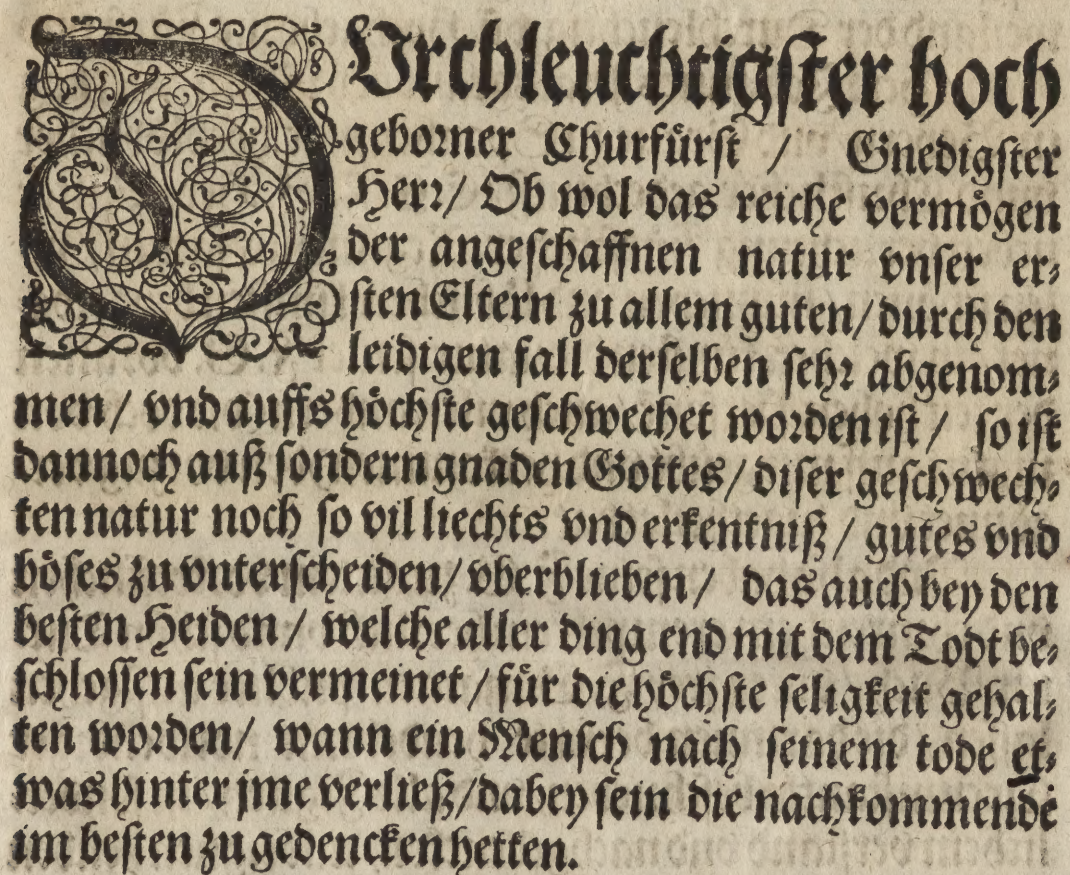 DVrchleuchtigſter hoch
geborner Churfürſt / Gnedigſter
Herr/ Ob wol das reiche vermögen
der angeſchaffnen natur vnſer er⸗
ſten Eltern zu allem guten/ durch den
leidigen fall derſelben ſehr abgenom⸗
men / vnd auffs höchſte geſchwechet worden iſt / ſo iſt
dannoch auß ſondern gnaden Gottes / diſer geſchwech⸗
ten natur noch ſo vil liechts vnd erkentniß / gutes vnd
böſes zu vnterſcheiden / vberblieben / das auch bey den
beſten Heiden / welche aller ding end mit dem Todt be⸗
ſchloſſen ſein vermeinet / für die höchſte ſeligkeit gehal⸗
ten worden / wann ein Menſch nach ſeinem tode et⸗
was hinter jme verließ / dabey ſein die nachkommende
im beſten zu gedencken hetten.